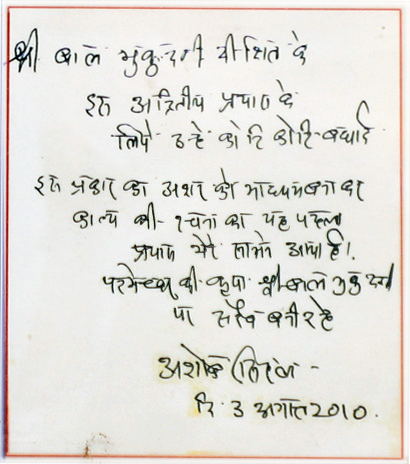 श्री बाल मुकुन्दजी दीक्षित के
इस अद्वितीय प्रयास के
लिये उन्हे कोटि कोटि बधाई
इस प्रकार का अक्षर को माध्यम बना कर
काव्य की रचना का यह पहला
प्रयास मेरे सामने आया है।
परमेश्वर की कृपा श्री बाल मुकुन्दजी
पर सदैव बनी रहे
अशोक सिंहल -
दि. 3 अगस्त 2010.